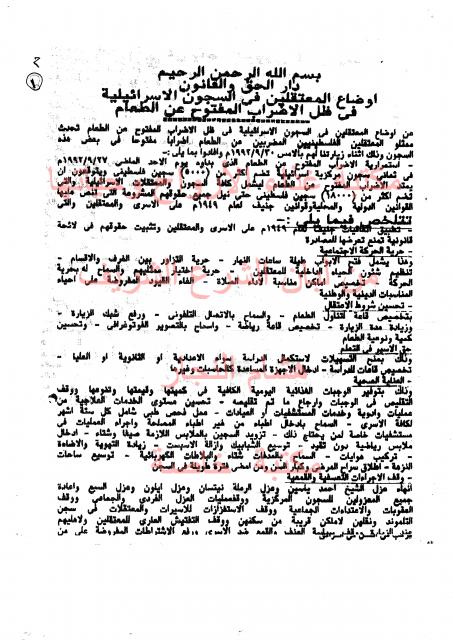 ٢
١
بسم الله الرحمن الرحيم
دار الحق والقانون
اوضاع المعتقلين في السجون الاسرائيلية
في ظل الاضراب المفتوح عن الطعام
عن اوضاع المعتقلين في السجون الاسرائيلية في ظل الاضراب المفتوح عن الطعام تحدث
ممثلو المعتقلين الفلسطينيين المضربين عن الطعام اضرابا مفتوحا في بعض هذه
السجون وذلك اثناء زيارتنا لهم بالامس ١٩٩٢/٩/٣٠ وافادوا بما يلي:-
- استمرارية الاضراب المفتوح عن الطعام الذي بداوه يوم الاحد الماضي ١٩٩٢/٩/٢٧
في سجون مركزية تضم اكثر من (٥٠٠٠) سجين فلسطيني ويتوقعون ان
يمتد الاضراب المفتوح عن الطعام ليشمل
تضم اكثر من (١٨٠٠٠) سجين فلسطيني حتى نيل حقوقهم المشروعة التي تنص عليها
القوانين الدولية والمحلية وقوانين جنيف لعام ١٩٤٩م على الاسرى والمعتقلين والتي
تتلخص فيما يلي :-
- تطبيق اتفاقيات جنيف لعام ١٩٤٩م على الاسرى والمعتقلين وتثبيت حقوقهم في لائحة
قانونية تمنع تعرضها للمصادرة
- حرية الحركة الاجتماعية
وهذا يشمل فتح الابواب طيلة ساعات النهار - حرية التزاور بين الغرف والاقسام -
تنظيم شئون الحياة الداخلية للمعتقلين - حرية اختيار ممثليهم والسماح له بحرية
الحركة - تخصيص اماكن مناسبة لاداء الصلاة - الغاء القيود المفروضة على احياء
المناسبات الدينية والوطنية
- تحسين شروط الاعتقال
بتخصيص قاعة لتناول الطعام - والسماح بالاتصال التلفوني - ورفع شبك الزيارة -
وزيادة مدة الزيارة - تخصيص قاعة رياضة - واسماح بالتصوير الفوتوغرافي - وتحسين
كمية ونوعية الطعام
حق الاسير في التعلم
وذلك بمنح التسهيلات لاستكمال الدراسة سواء الاعدادية او الثانوية او العليا -
تخصيص قاعات للدراسة - ادخال الاجهزة المساعدة كالحاسبات وغيرها
- العناية الصحية
وذلك بتوفير الوجبات الغذائية اليومية الكافية في كميتها وقيمتها وتنوعها ووقف
التقليص في الوجبات وارجاع ما تم تقليصه - تحسين مستوى الخدمات العلاجية من
عمليات وادوية وخدمات المستشفيات او العيادات - عمل فحص طبي شامل كل ستة اشهر
لكافة الاسرى - السماح بادخال اطباء من غير اطباء المصلحة واجراء العمليات في
مستشفيات خاصة لمن يحتاج ذلك - تزويد السجين بالملابس اللازمة صيفا وشتاء - ادخال
ملابس رياضية دون تقييد - توفير النظافة وازالة الاسبست - زيادة التهوية والاضاءة
- تركيب هوايات - السماح بالمدفآت شتاء والبلاطات الكهربائية - توسيع ساحات
النزهة - اطلاق سراح المرضى وكبار السن ومن امضى فترة طويلة في السجن
- وقف الاجراءات التعسفية والقمعية
انهاء عزل الشيخ احمد ياسين وعزل الرملة نيتسان وعزل ايلون وعزل السبع واعادة
جميع المعزولين للسجون المركزية ووقف عمليات العزل الفردي والجماعي ووقف
العقوبات والاعتداءات الجماعية ووقف الاستفزازات للاسيرات والمعتقلات في سجن
التلموند ونقلهن لاماكن قريبة من سكنهن ووقف التفتيش العاري للمعتقلين ولاهليهم
سياسة العنف والقمع ضد الاسرى ورفع الاشتراطات المفروضة على من